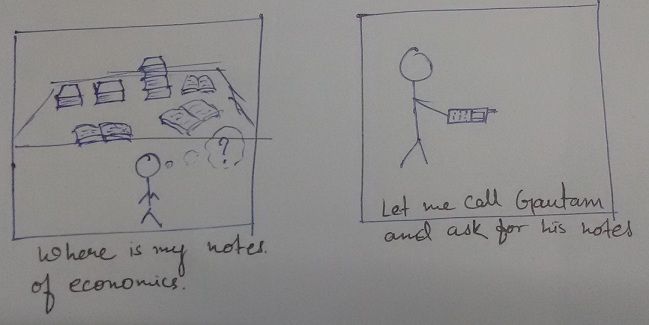 ?
Where is my notes.
of economics.
Let me call Gautam
and ask for his notes